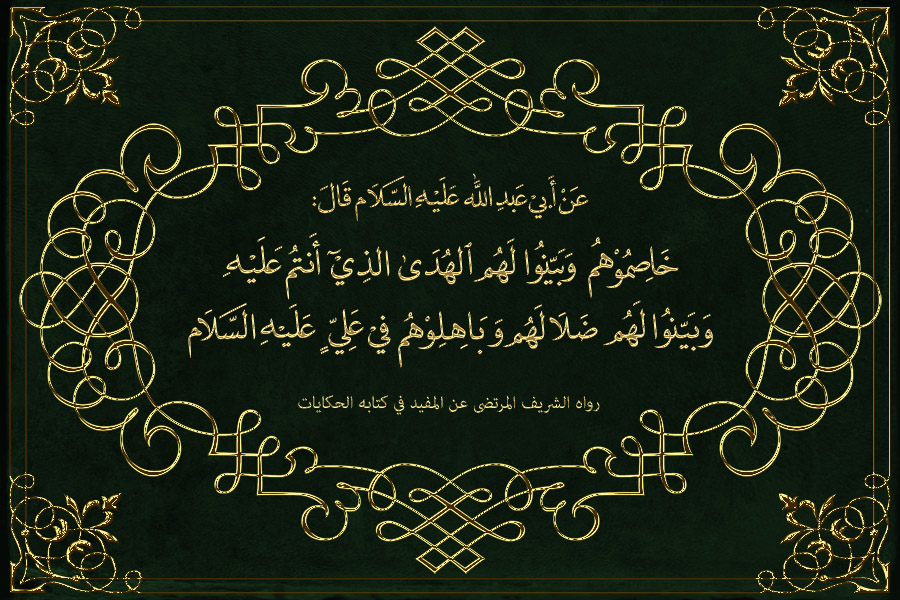 عَنْ أَبِيْ عَبْدِ اللّٰه عَلَيْهِ السَّلَام قَالَ:
خَاصِمُوْهُمْ وَبَيِّنُوا لَهُم ٱلْهُدَىٰ الذِيْٓ أَنتُمْ عَلَيْهِ
وَبَيِّنُوا لَهُم ضَلَالَهُم وَبَاهِلِوْهُمْ فِيْ عَلِيٍّ عَلَيْهِ السَّلَام
رواه الشريف المرتضى عن المفيد في كتابه الحكايات